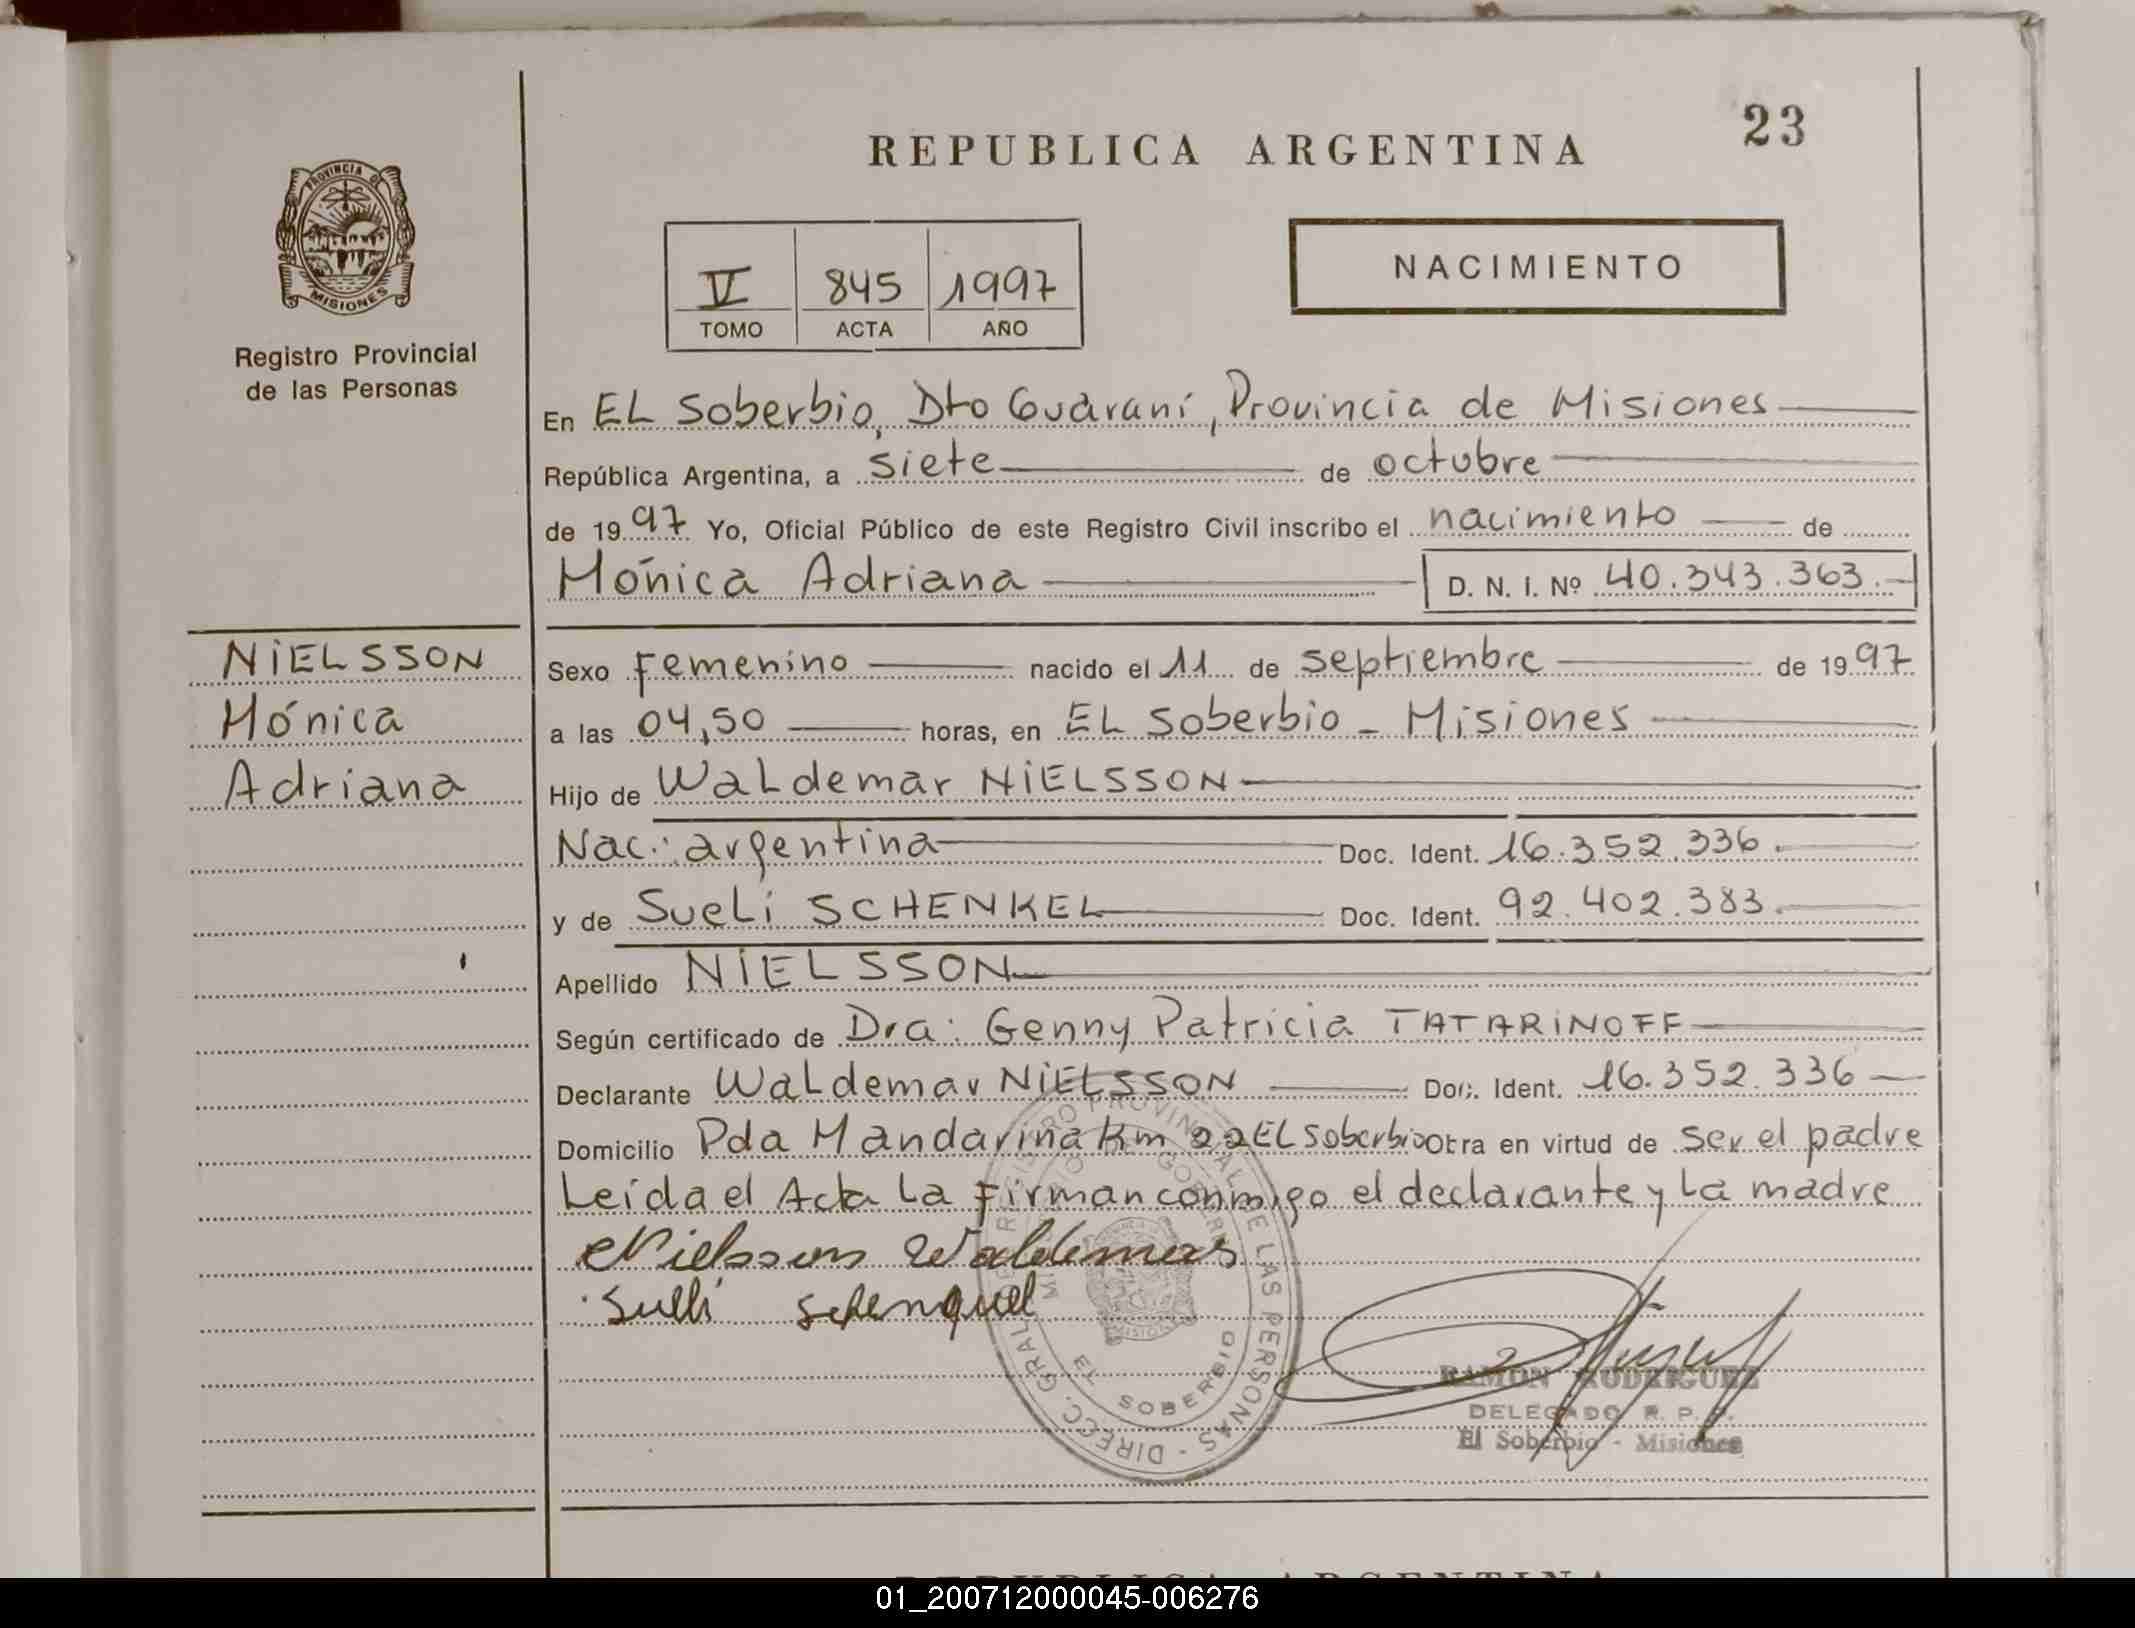 23
REPUBLICA ARGENTINA
PROVINCIA DE
MISIONES
Registro Provincial
de las Personas
V 845 1997
TOMO ACTA AÑO
NACIMIENTO
En EL Soberbio, Dto Guaraní, Provincia de Misiones
República Argentina, a siete de octubre
de 1997 Yo, Oficial Público de este Registro Civil inscribo el nacimiento de
Mónica Adriana D. N. I. Nº 40.343.363.-
NIELSSON
Mónica
Adriana
Sexo Femenino nacido el 11 de septiembre de 1997
a las 04,50 horas, en EL Soberbio - Misiones
Hijo de Waldemar NIELSSON
Nac.: argentina Doc. Ident. 16.352.336.
y de Sueli SCHENKEL Doc. Ident. 92.402.383.
Apellido NIELSSON
Según certificado de Dra: Genny Patricia TATARINOFF
Declarante Waldemar NIELSSON Doc. Ident. 16.352.336
Domicilio Pda Mandarina Km 22 EL Soberbio Obra en virtud de ser el padre
Leída el Acta La Firman conmigo el declarante y La madre
Nielsson Waldemar
Suelli Schenquel
DIRECC. GRAL. REGISTRO PROVINCIAL DE LAS PERSONAS -
GOBIERNO
MISIONES
EL SOBERBIO
RAMON RODRIGUEZ
DELEGADO R. P. P.
El Soberbio - Misiones
REPUBLICA ARGENTINA
01_200712000045-006276